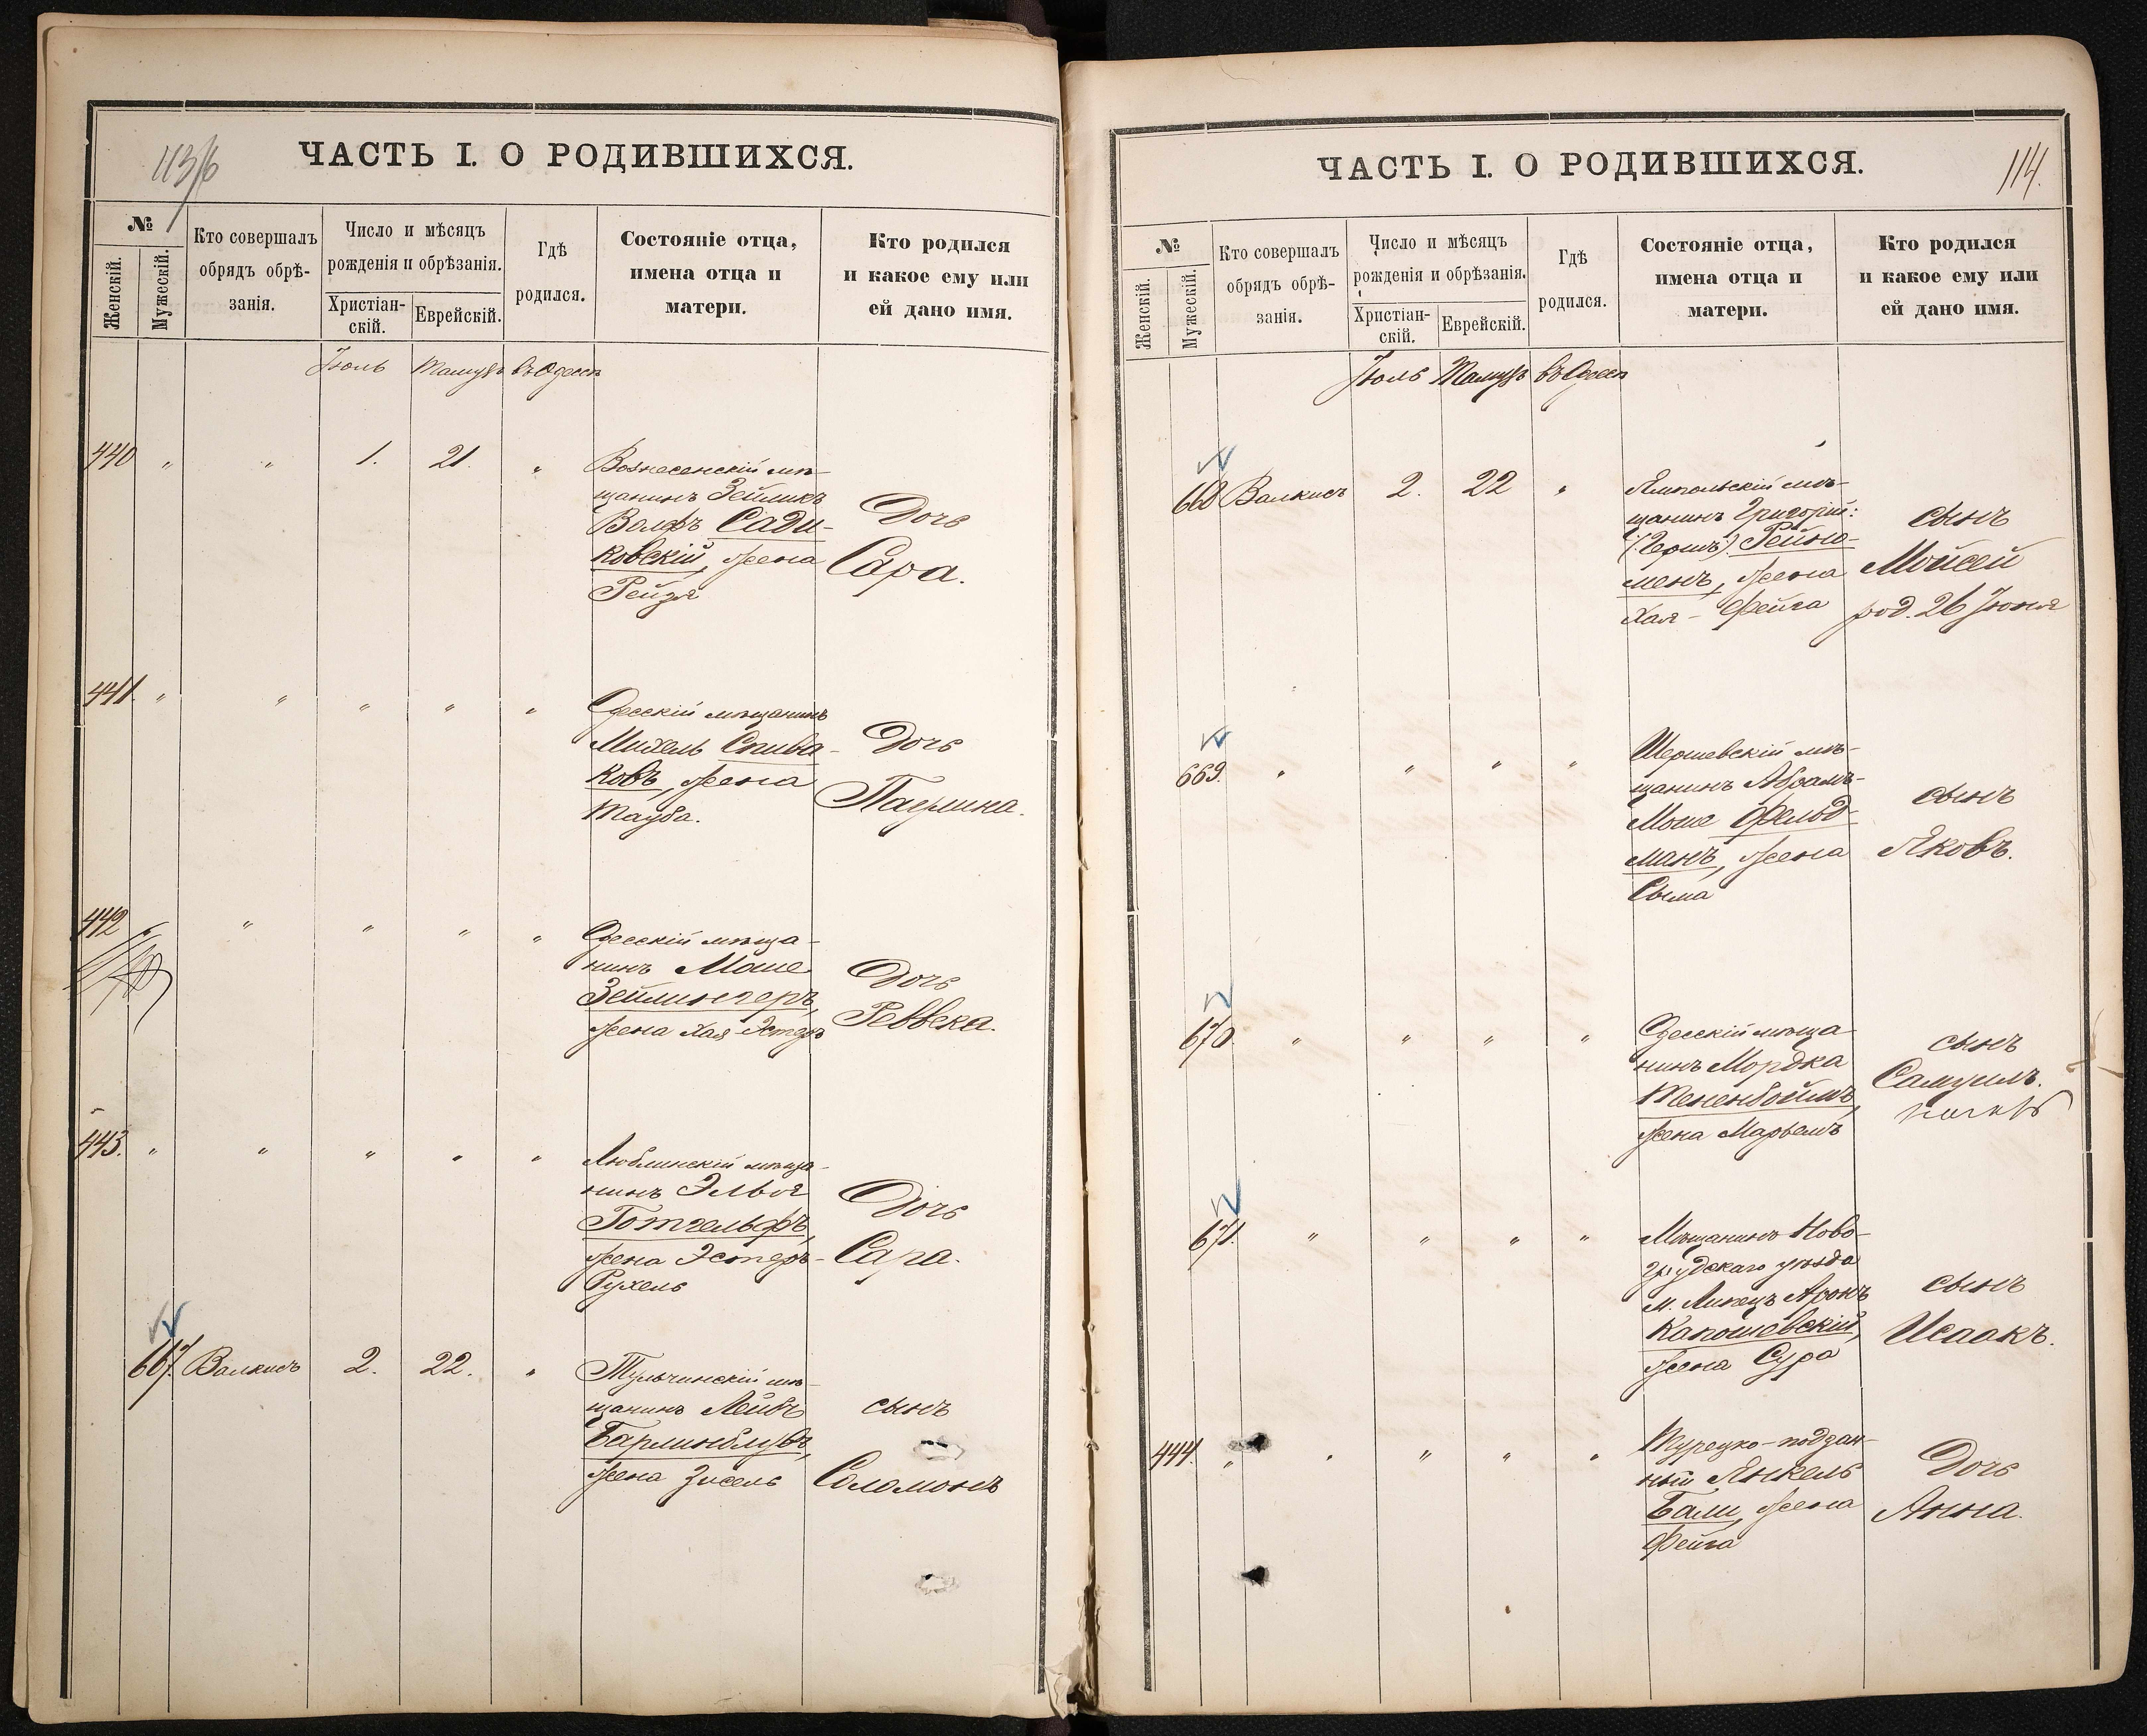 113/б
ЧАСТЬ I. О РОДИВШИХСЯ.
№
Женскій.
Мужескій.
Кто совершалъ
обрядъ обрѣ-
занія.
Число и мѣсяцъ
рожденія и обрѣзанія.
Христіан-
скій.
Еврейскій.
Гдѣ
родился.
Состояніе отца,
имена отца и
матери.
Кто родился
и какое ему или
ей дано имя.
Іюль Тамузъ въ Одессѣ
440 " " 1. 21. "
Вознесенскій мѣ-
щанинъ Зейликъ
Волфъ Сади-
ковскій, жена
Рейзя
Дочь
Сара.
441. " " " " "
Одесскій мѣщанинъ
Михель Спива-
ковъ, жена
Тауба.
Дочь
Перлина.
442 " " " " "
Одесскій мѣща-
нинъ Моше
Зейлингеръ,
жена Хая Эстеръ
Дочь
Реввека.
443. " " " " "
Люблинскій мѣща-
нинъ Эльья
Готгельфъ,
жена Эстеръ-
Рухель
Дочь
Сара.
667. Валкисъ 2. 22. "
Тульчинскій мѣ-
щанинъ Лейбъ
Барлинблуть,
жена Зисель
сынъ
Соломонъ
114.
ЧАСТЬ I. О РОДИВШИХСЯ.
№
Женскій.
Мужескій.
Кто совершалъ
обрядъ обрѣ-
занія.
Число и мѣсяцъ
рожденія и обрѣзанія.
Христіан-
скій.
Еврейскій.
Гдѣ
родился.
Состояніе отца,
имена отца и
матери.
Кто родился
и какое ему или
ей дано имя.
Іюль Тамузъ въ Одессѣ
668 Валкисъ 2. 22 "
Ямпольскій мѣ-
щанинъ Григорій:
(:Гершъ) Рейню-
менъ, жена
Хая - Фейга
сынъ
Мойсей
род. 26 Іюня
669. " " " "
Шершевскій мѣ-
щанинъ Абрамъ-
Моше Фельд-
манъ, жена
Сыма
сынъ
Яковъ.
670. " " " "
Одесскій мѣща-
нинъ Мордка
Тененбоймъ,
жена Марьемъ
сынъ
Самуилъ.
671. " " " "
Мѣщанинъ Ново-
грудскаго уѣзда
м. Липецъ Аронъ
Капошевскій,
жена Сура
сынъ
Исаакъ.
444. " " " " "
Турецко-поддан-
ный Янкель
Бали, жена
Фейга
Дочь
Анна.